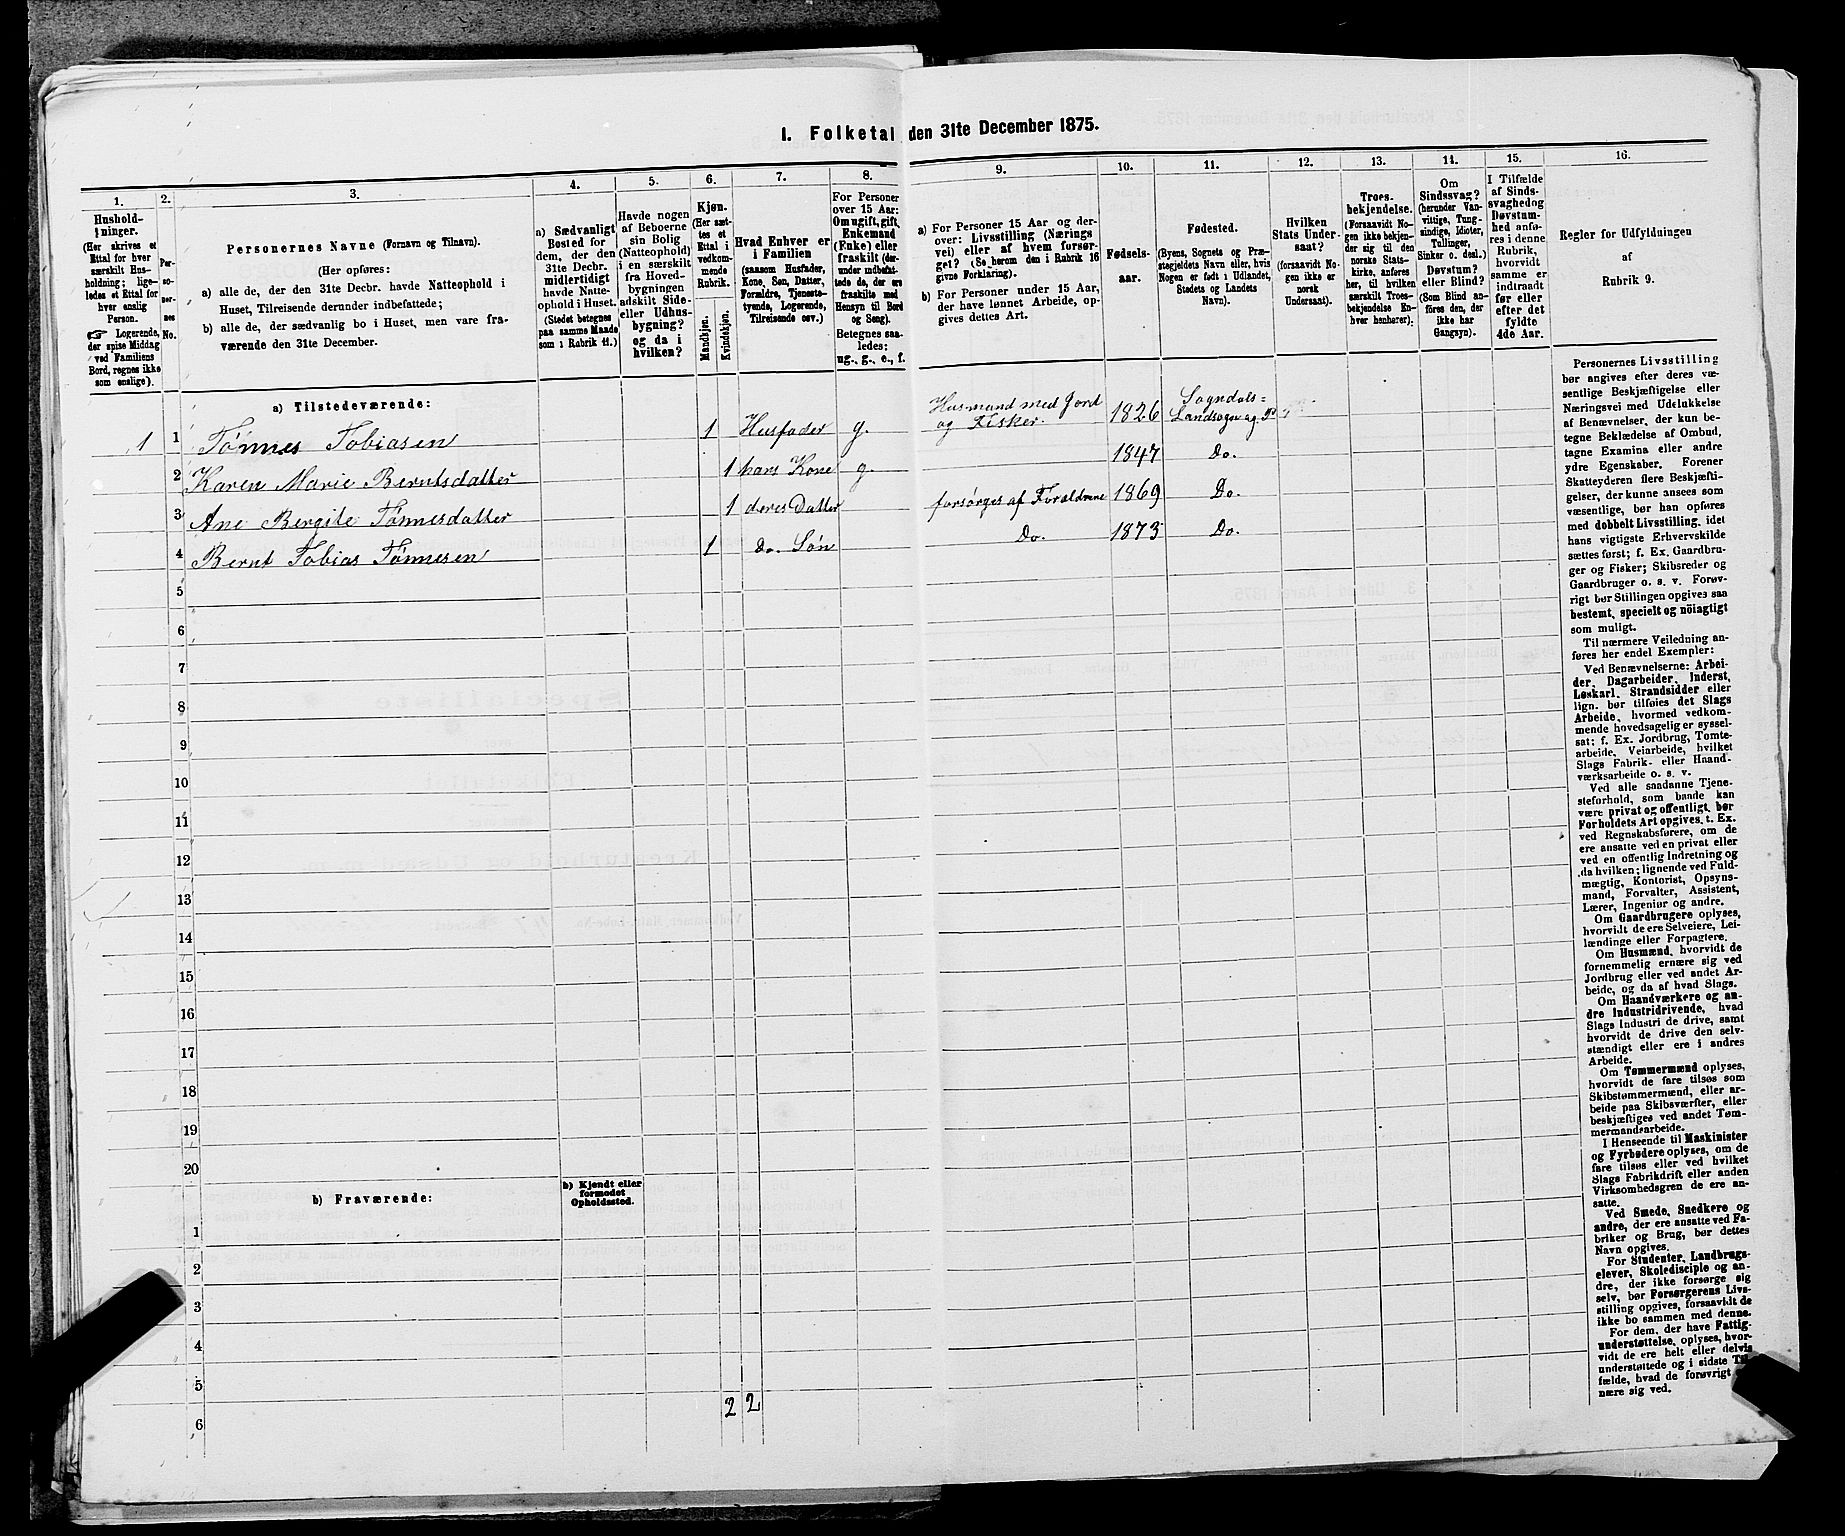 I. Folketal den 31te December 1875.
1.
2.
3.
4.
5.
6.
7.
8.
9.
10.
11.
12.
13.
14.
15.
16.
Hushold-
ninger.
(Her skrives et
Ettal for hver
særskilt Hus-
holdning; lige-
ledes et Ettal for
hver enslig
Person.
☞ Logerende,
der spise Middag
ved Familiens
Bord, regnes ikke
som enslige).
Per-
so-
ner-
nes
No.
Personernes Navne (Fornavn og Tilnavn).
(Her opføres:
a) alle de, der den 31te Decbr. havde Natteophold i
Huset, Tilreisende derunder indbefattede;
b) alle de, der sædvanlig bo i Huset, men vare fra-
værende den 31te December.
a) Sædvanligt
Bosted for
dem, der den
31te Decbr.
midlertidigt
havde Natte-
ophold i Huset.
(Stedet betegnes
paa samme Maade
som i Rubrik 11.)
Havde nogen
af Beboerne
sin Bolig
(Natteophold)
i en særskilt
fra Hoved-
bygningen
adskilt Side-
eller Udhus-
bygning?
og da i
hvilken?
Kjøn.
(Her sæt-
tes et
Ettal i
vedkom-
mende
Rubrik.
Mandkjøn.
Kvindekjøn.
Hvad Enhver er
i Familien
(saasom Husfader,
Kone, Søn, Datter,
Forældre, Tjeneste-
tyende, Logerende,
Tilreisende osv.)
For Personer
over 15 Aar:
Om ugift, gift,
Enkemand
(Enke) eller
fraskilt (der-
under indbefat-
tede de, der ere
fraskilte med
Hensyn til Bord
og Seng).
Betegnes saa-
ledes:
ug., g., e., f.
a) For Personer 15 Aar og der-
over: Livsstilling (Nærings
vei) eller af hvem forsør-
get? (Se herom den i Rubrik 16
givne Forklaring).
b) For Personer under 15 Aar,
der have lønnet Arbeide, op-
gives dettes Art.
Fødsels-
aar.
Fødested.
(Byens, Sognets og Præ-
stegjeldets Navn eller, hvis
Nogen er født i Udlandet,
Stedets og Landets
Navn).
Hvilken
Stats Under-
saat?
(forsaavidt No-
gen ikke er
norsk
Undersaat).
Troes-
bekjendelse.
(Forsaavidt No-
gen ikke bekjen-
der sig til den
norske Stats-
kirke, anføres
her, til hvilken
særskilt Troes-
bekjendelse En-
hver henhører).
Om
Sindssvag?
(herunder Van-
vittige, Tung-
sindige, Idioter,
Tullinger,
Sinker o. desl.)
Døvstum?
eller Blind?
(Som Blind an-
føres den, der
ikke har
Gangsyn).
I Tilfælde
af Sinds-
svaghed og
Døvstum-
hed anfø-
res i denne
Rubrik,
hvorvidt
samme er
indtraadt
før eller
efter det
fyldte
4de Aar.
Regler for Udfyldningen
af
Rubrik 9.
a) Tilstedeværende:
1 1 Tönnes Tobiasen 1 Husfader g. Husmand med Jord og Fisker. 1826 Sogndals= Landsogn og
2 Karen Marie Berntsdatter 1 hans Kone g. 1847 Do.
3 Ane Bergite Tönnesdatter 1 deres Datter forsörges af Forældrene 1869 Do.
4 Bernt Tobias Tönnesen 1 Do. Sön Do. 1873 Do.
5
6
7
8
9
10
11
12
13
14
15
16
17
18
19
20
b) Fraværende:
b) Kjendt eller
formodet
Opholdssted.
1
2
3
4
5
6
2 2
Personernes Livsstilling
bør angives efter deres væ-
sentlige Beskjæftigelse eller
Næringsvei med Udelukkelse
af Benævnelser, der kun be-
tegne Beklædelse af Ombud,
tagne Examina eller andre
ydre Egenskaber. Forener
Skatteyderen flere Beskjæfti-
gelser, der kunne ansees som
væsentlige, bør han opføres
med dobbelt Livsstilling, idet
hans vigtigste Erhvervskilde
sættes først; f. Ex. Gaardbru-
ger og Fisker; Skibsreder og
Gaardbruger o. s. v. Forøv-
rigt bør Stillingen opgives saa
bestemt, specielt og nöiagtigt
som muligt.
Til nærmere Veiledning an-
føres her endel Exempler:
Ved Benævnelserne: Arbei-
der, Dagarbeider, Inderst,
Løskarl, Strandsidder eller
lign. bør tilføies det Slags
Arbeide, hvormed vedkom-
mende hovedsagelig er syssel-
sat; f. Ex. Jordbrug, Tomte-
arbeide, Veiarbeide, hvilket
Slags Fabrik- eller Haand-
værksarbeide o. s. v.
Ved alle saadanne Tjene-
steforhold, som baade kan
være privat og offentligt, bør
Forholdets Art opgives, t. Ex.
ved Regnskabsførere, om de
ere ansatte ved en privat eller
ved en offentlig Indretning og
da hvilken; lignende ved Fuld-
mægtig, Kontorist, Opsyns-
mand, Forvalter, Assistent,
Lærer, Ingeniør og andre.
Om Gaardbrugere oplyses,
hvorvidt de ere Selveiere, Lei-
lændinge eller Forpagtere.
Om Husmænd, hvorvidt de
fornemmelig ernære sig ved
Jordbrug eller ved andet Ar-
beide, og da af hvad Slags.
Om Haandværkere og an-
dre Industridrivende, hvad
Slags Industri de drive, samt
hvorvidt de drive den selv-
stændigt eller ere i andres
Arbeide.
Om Tømmermænd oplyses,
hvorvidt de fare tilsøs som
Skibstømmermænd, eller ar-
beide paa Skibsværfter, eller
beskjæftiges ved andet Tøm-
mermandsarbeide.
I Henseende til Maskinister
og Fyrbødere oplyses, om de
fare tilsøs eller ved hvilket
Slags Fabrikdrift eller anden
Virksomhedsgren de ere an-
satte.
Ved Smede, Snedkere og
andre, der ere ansatte ved Fa-
briker og Brug, bør dettes
Navn opgives.
For Studenter, Landbrugs-
elever, Skoledisciple og an-
dre, der ikke forsørge sig
selv, bør Forsørgerens Livs-
stilling opgives, forsaavidt de
ikke bo sammen med denne.
For dem, der have Fattig-
understøttelse, oplyses, hvor-
vidt de ere helt eller delvis
understøttede og i sidste
fælde, hvad de forøvrigt
nære sig ved.